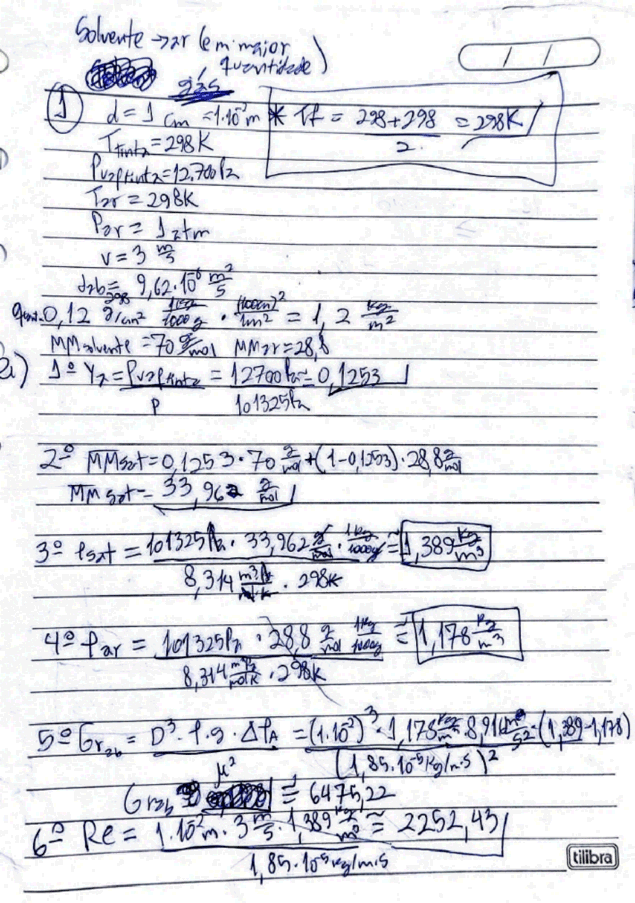 Solvente → ar (em maior quantidade)
gás
1 d = 1 cm = 1·10⁻² m * Tf = 298+298 / 2 = 298K
Ttinta = 298K
Pvaptinta = 12.700Pa
Tar = 298K
Par = 1 atm
v = 3 m/s
dab298 = 9,62·10⁻⁶ m²/s
0,12 g/cm² · 1kg/1000g · (100cm)²/1m² = 1,2 kg/m²
MMsolvente = 70 g/mol MMar = 28,8
1º Ya = Pvaptinta / P = 12700Pa / 101325Pa = 0,1253
2º MMsat = 0,1253·70 g/mol + (1-0,1253)·28,8 g/mol
MMsat = 33,962 g/mol
3º ρsat = 101325Pa · 33,962 g/mol · 1kg/1000g / 8,314 m³Pa/mol·K · 298K ≅ 1,389 kg/m³
4º ρar = 101325Pa · 28,8 g/mol 1kg/1000g / 8,314 m³Pa/mol·K · 298K ≅ 1,178 kg/m³
5º Grab = D³·ρ·g·ΔρA / μ² = (1·10⁻²)³·1,178 kg/m³·8,91 m/s²·(1,389-1,178) / (1,85·10⁻⁵kg/m·s)²
Grab ≅ 6475,22
6º Re = 1·10⁻²m · 3 m/s · 1,389 kg/m³ / 1,85·10⁻⁵kg/m·s ≅ 2252,43
tilibra